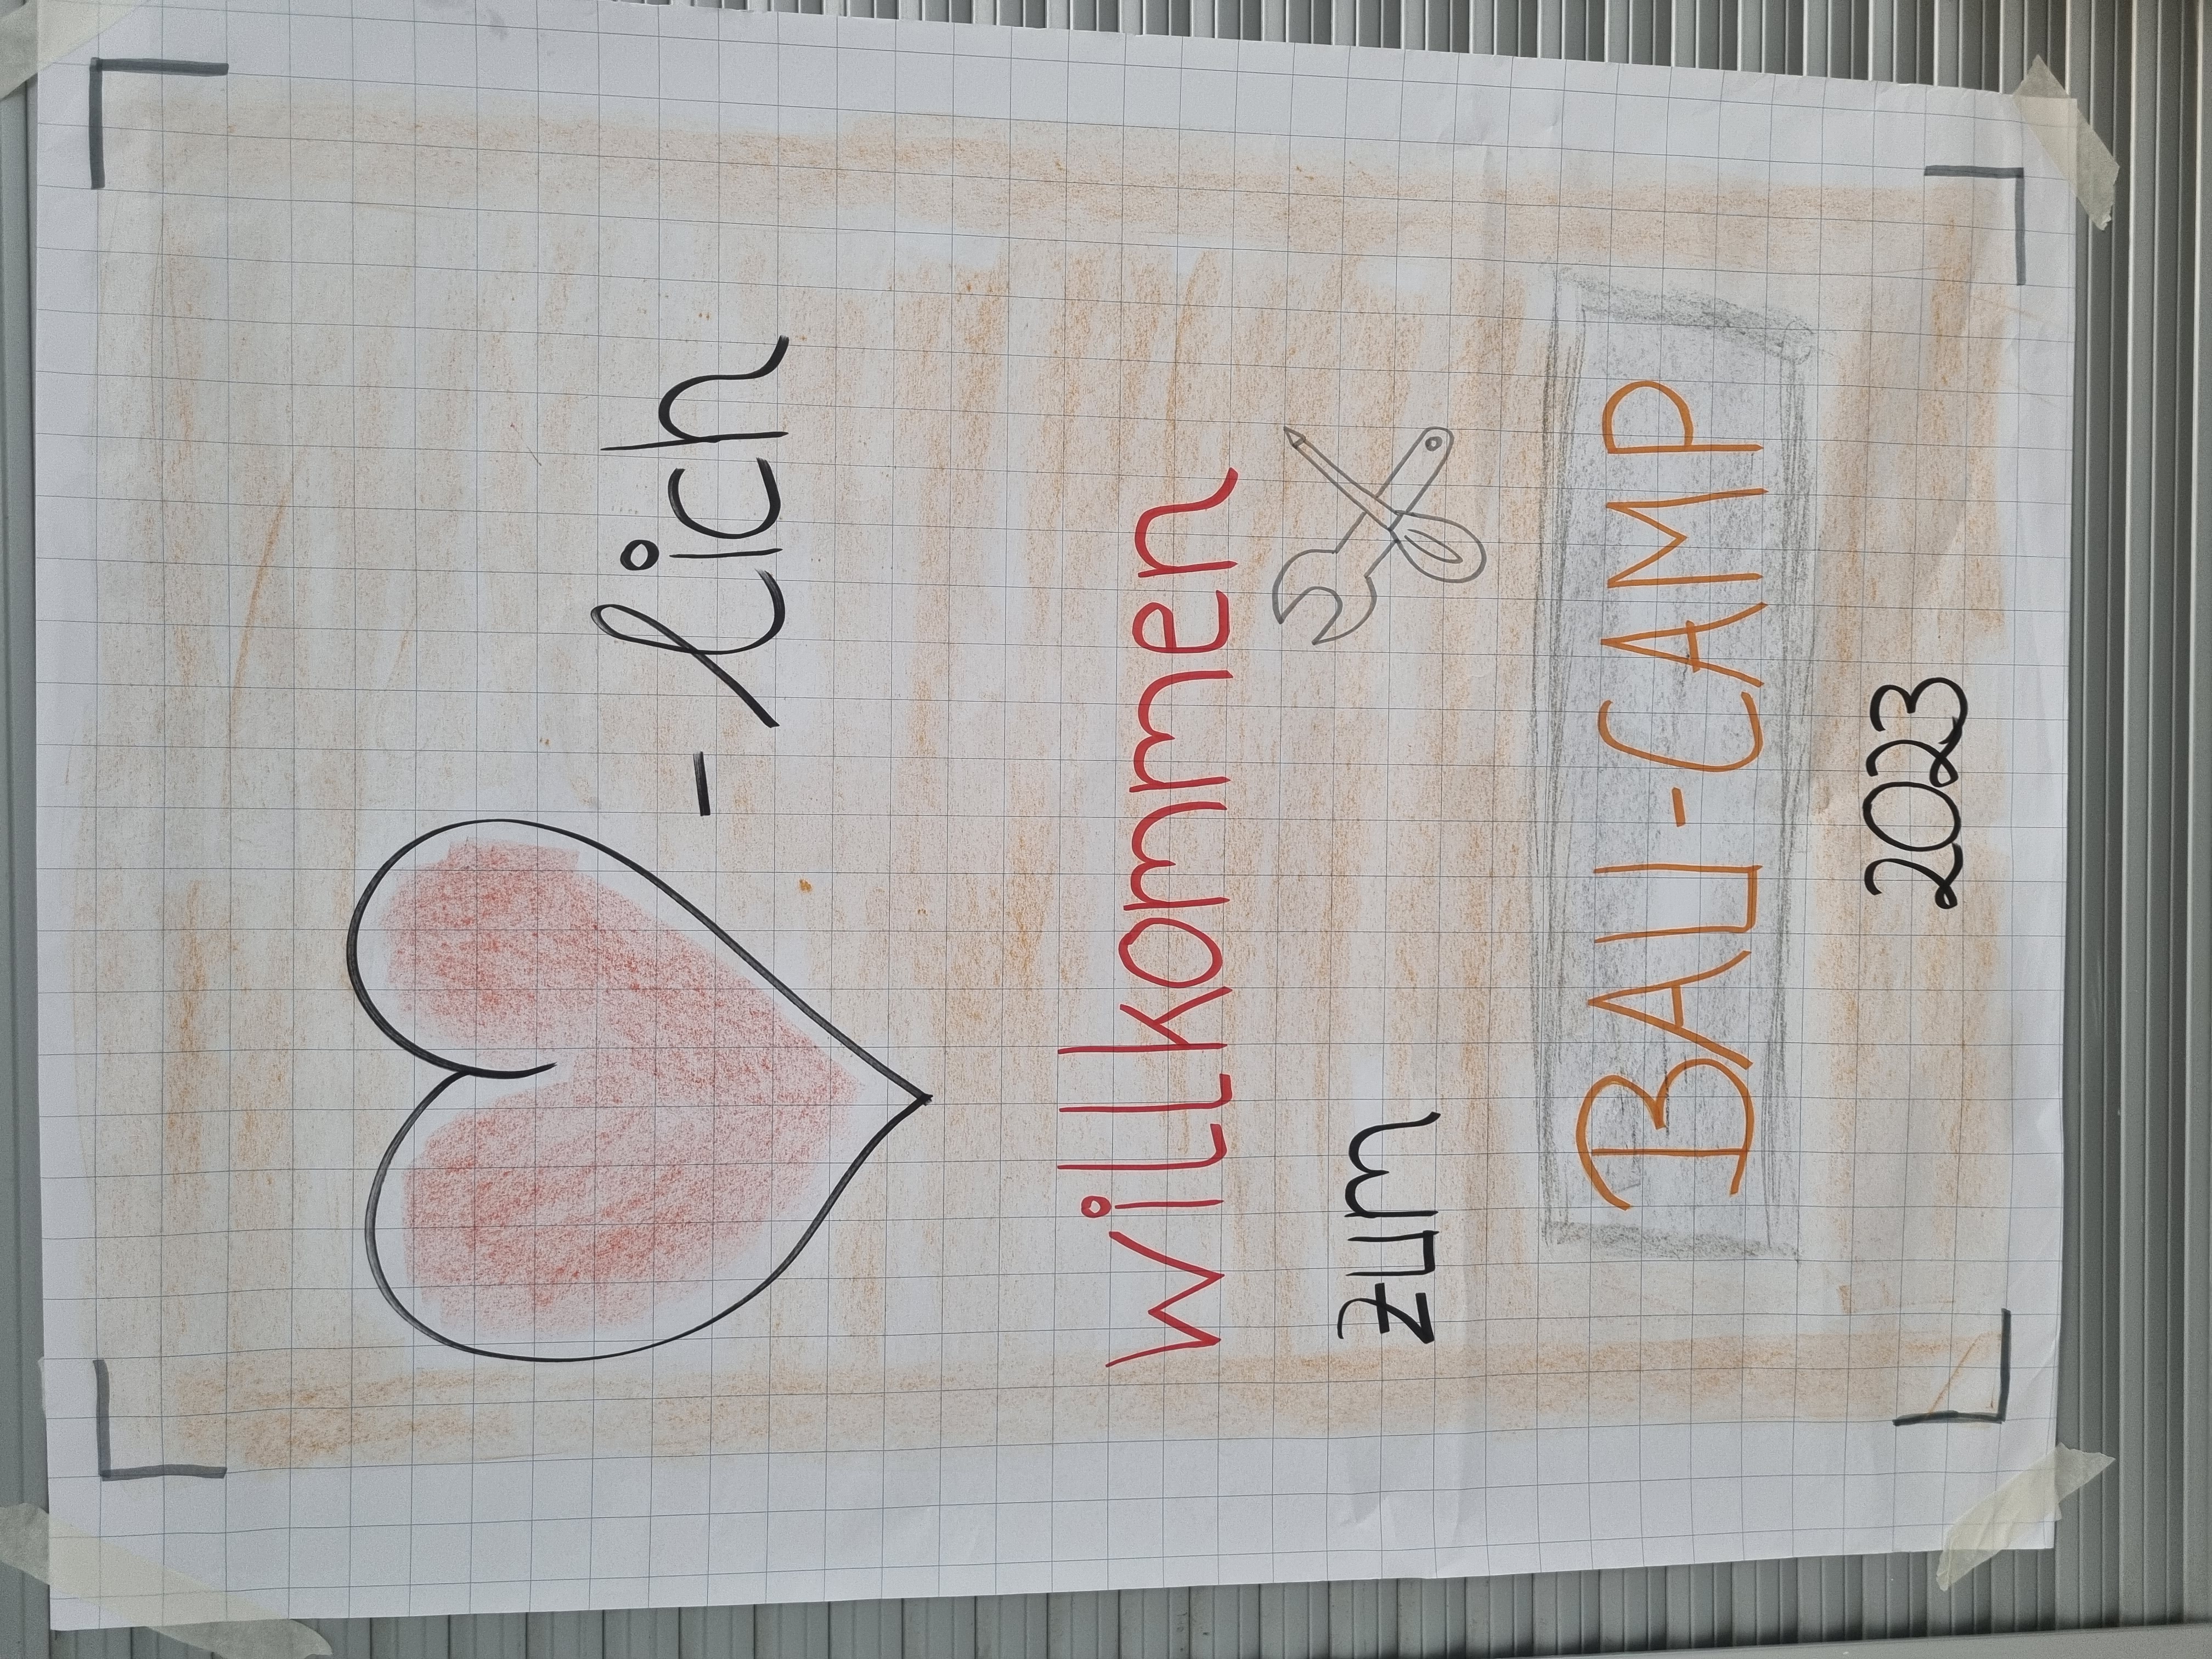 -lich
willkommen
zum
BAU-CAMP
2023